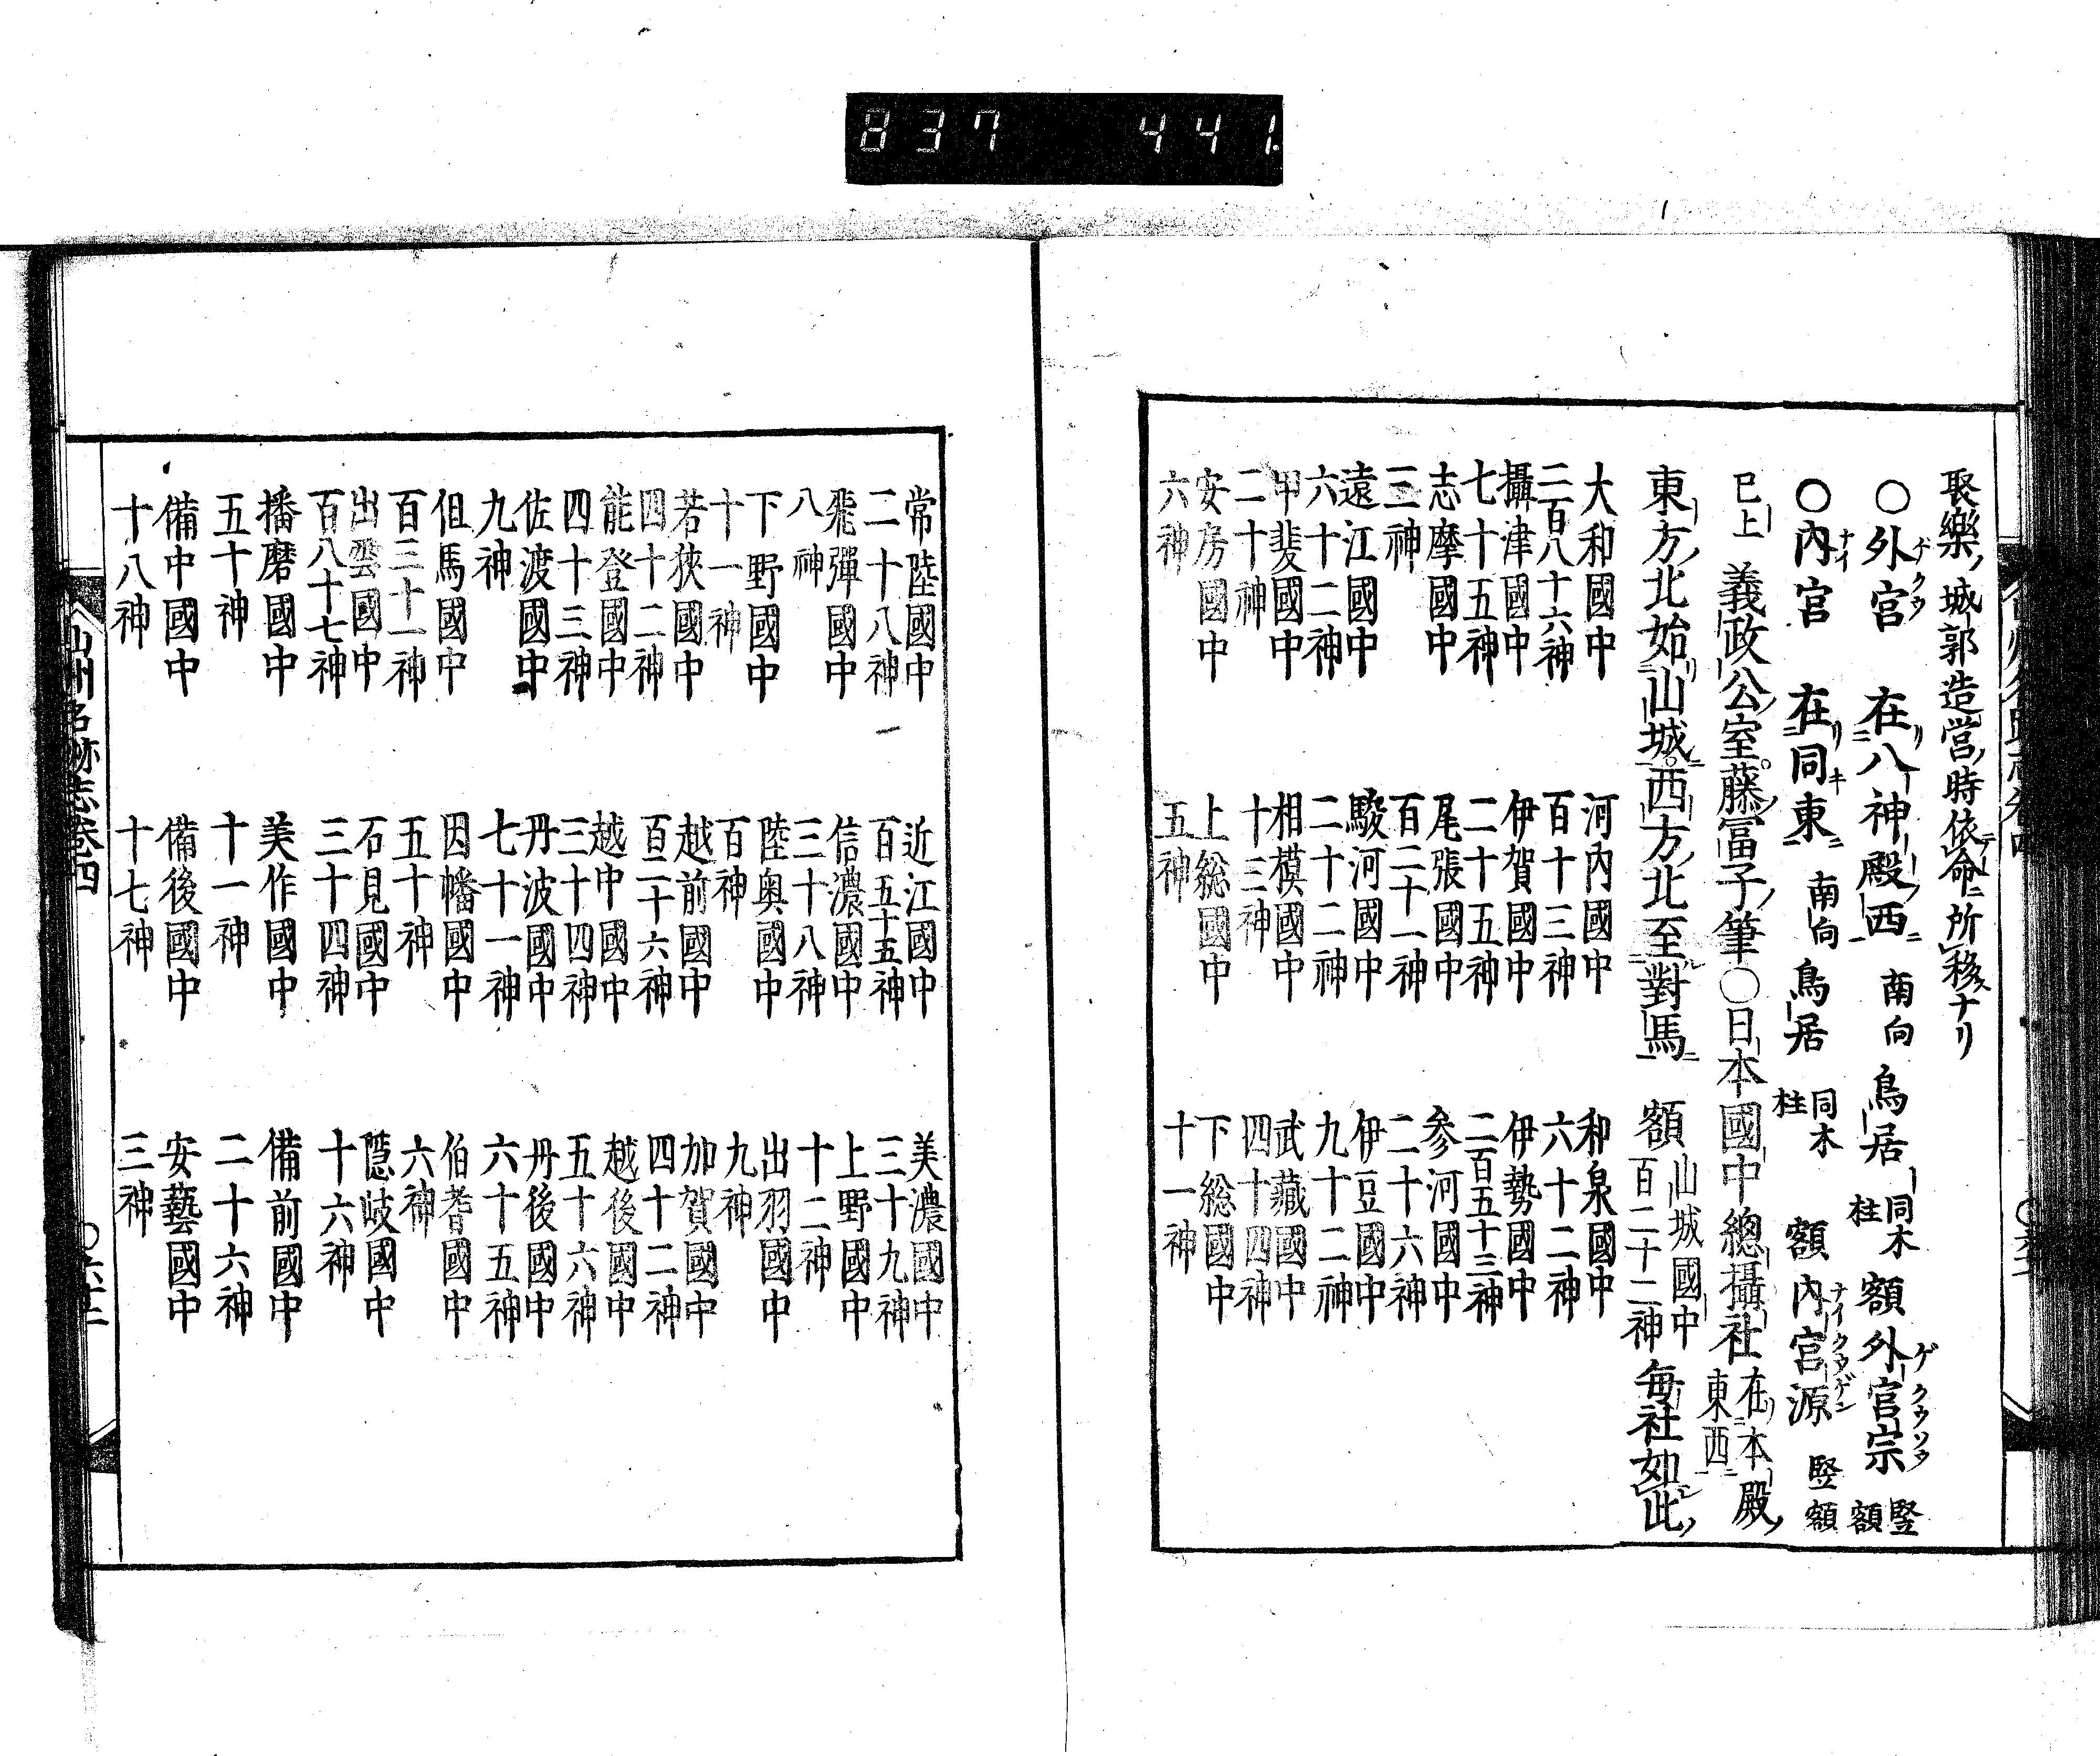 837 441.
聚樂ノ城郭造営ノ時依命ニ所移ナリ
○外宮 在八神殿西 南向 鳥居 同木柱 額 外宮宗 竪額
○内宮 在同東 南向 鳥居 同木柱 額 内宮源 竪額
已上 義政公室藤冨子筆○日本國中總攝社 在本殿東西
東方ノ北始山城西方ノ北至對馬 額 山城國中百二十二神 毎社如此
大和國中 河内國中 和泉國中
二百八十六神 百十三神 六十二神
攝津國中 伊賀國中 伊勢國中
七十五神 二十五神 二百五十三神
志摩國中 尾張國中 参河國中
三神 百二十一神 二十六神
遠江國中 駿河國中 伊豆國中
六十二神 二十二神 九十二神
甲斐國中 相模國中 武藏國中
二十神 十三神 四十四神
安房國中 上総國中 下総國中
六神 五神 十一神
常陸國中 近江國中 美濃國中
二十八神 百五十五神 三十九神
飛彈國中 信濃國中 上野國中
八神 三十八神 十二神
下野國中 陸奥國中 出羽國中
十一神 百神 九神
若狹國中 越前國中 加賀國中
四十二神 百二十六神 四十二神
能登國中 越中國中 越後國中
四十三神 三十四神 五十六神
佐渡國中 丹波國中 丹後國中
九神 七十一神 六十五神
但馬國中 因幡國中 伯耆國中
百三十一神 五十神 六神
出雲國中 石見國中 隠岐國中
百八十七神 三十四神 十六神
播磨國中 美作國中 備前國中
五十神 十一神 二十六神
備中國中 備後國中 安藝國中
十八神 十七神 三神
山州名跡志巻四 ○六十二